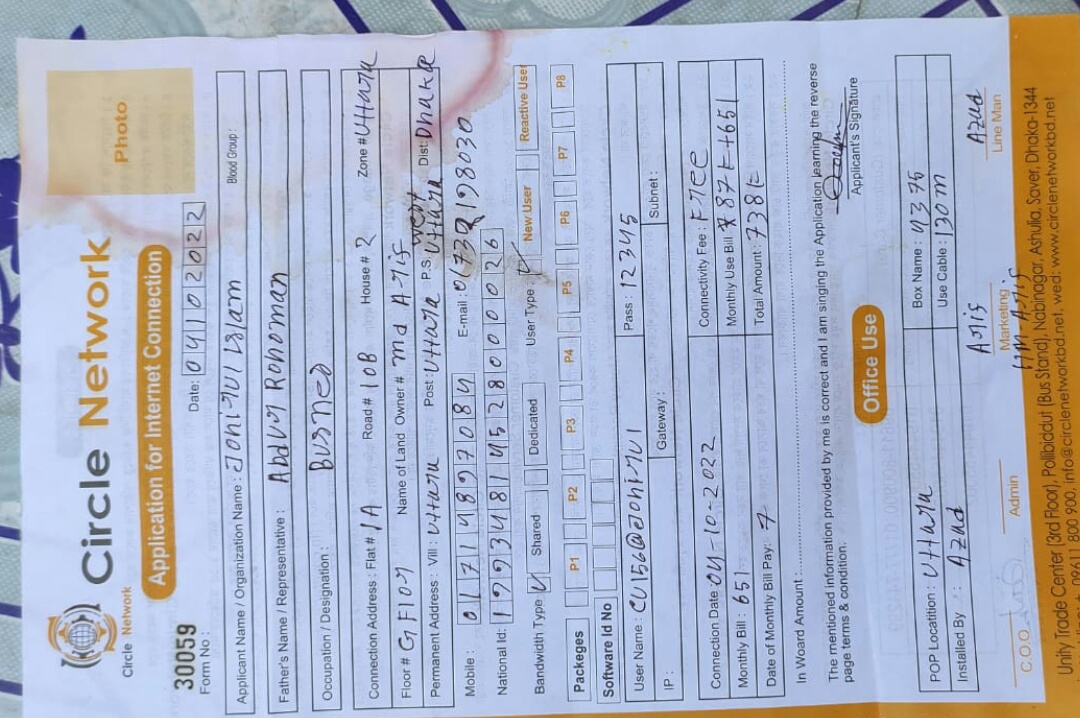 Circle Network
Circle Network
Photo
30059
Form No :
Application for Internet Connection
Date: 04102022
Applicant Name / Organization Name : Johirul Islam Blood Group :
Father's Name / Representative : Abdur Rohoman
Occupation / Designation : Busned
Connection Address : Flat # 1A Road # 10B House # 2 Zone # Uttara
Floor # G Flor Name of Land Owner # md Aris
Permanent Address : Vill : Uttara Post : Uttara P.S. Uttara west Dist: Dhaka
Mobile : 01714897084 E-mail :
National Id: 19934814528000026
Bandwidth Type Shared Dedicated User Type : New User Reactive User
Packeges P1 P2 P3 P4 P5 P6 P7 P8
Software Id No
User Name : CU156@Johirul Pass : 12345
IP : Gateway : Subnet :
Connection Date 04-10-2022 Connectivity Fee : Free
Monthly Bill : 651 Monthly Use Bill 87+651
Date of Monthly Bill Pay: 7 Total Amount : 738
In Woard Amount
The mentioned information provided by me is correct and I am singing the Application learning the reverse
page terms & condition.
Applicant's Signature
Office Use
POP Locatition : Uttara Box Name : 4375
Installed By : Azad Use Cable : 130m
Aris Azad
C.O.O Admin Marketing Line Man
Unity Trade Center (3rd Floor), Pollibiddut (Bus Stand), Nabinagar, Ashulia, Saver, Dhaka-1344
09611 800 900, info@circlenetworkbd.net, wed: www.circlenetworkbd.net